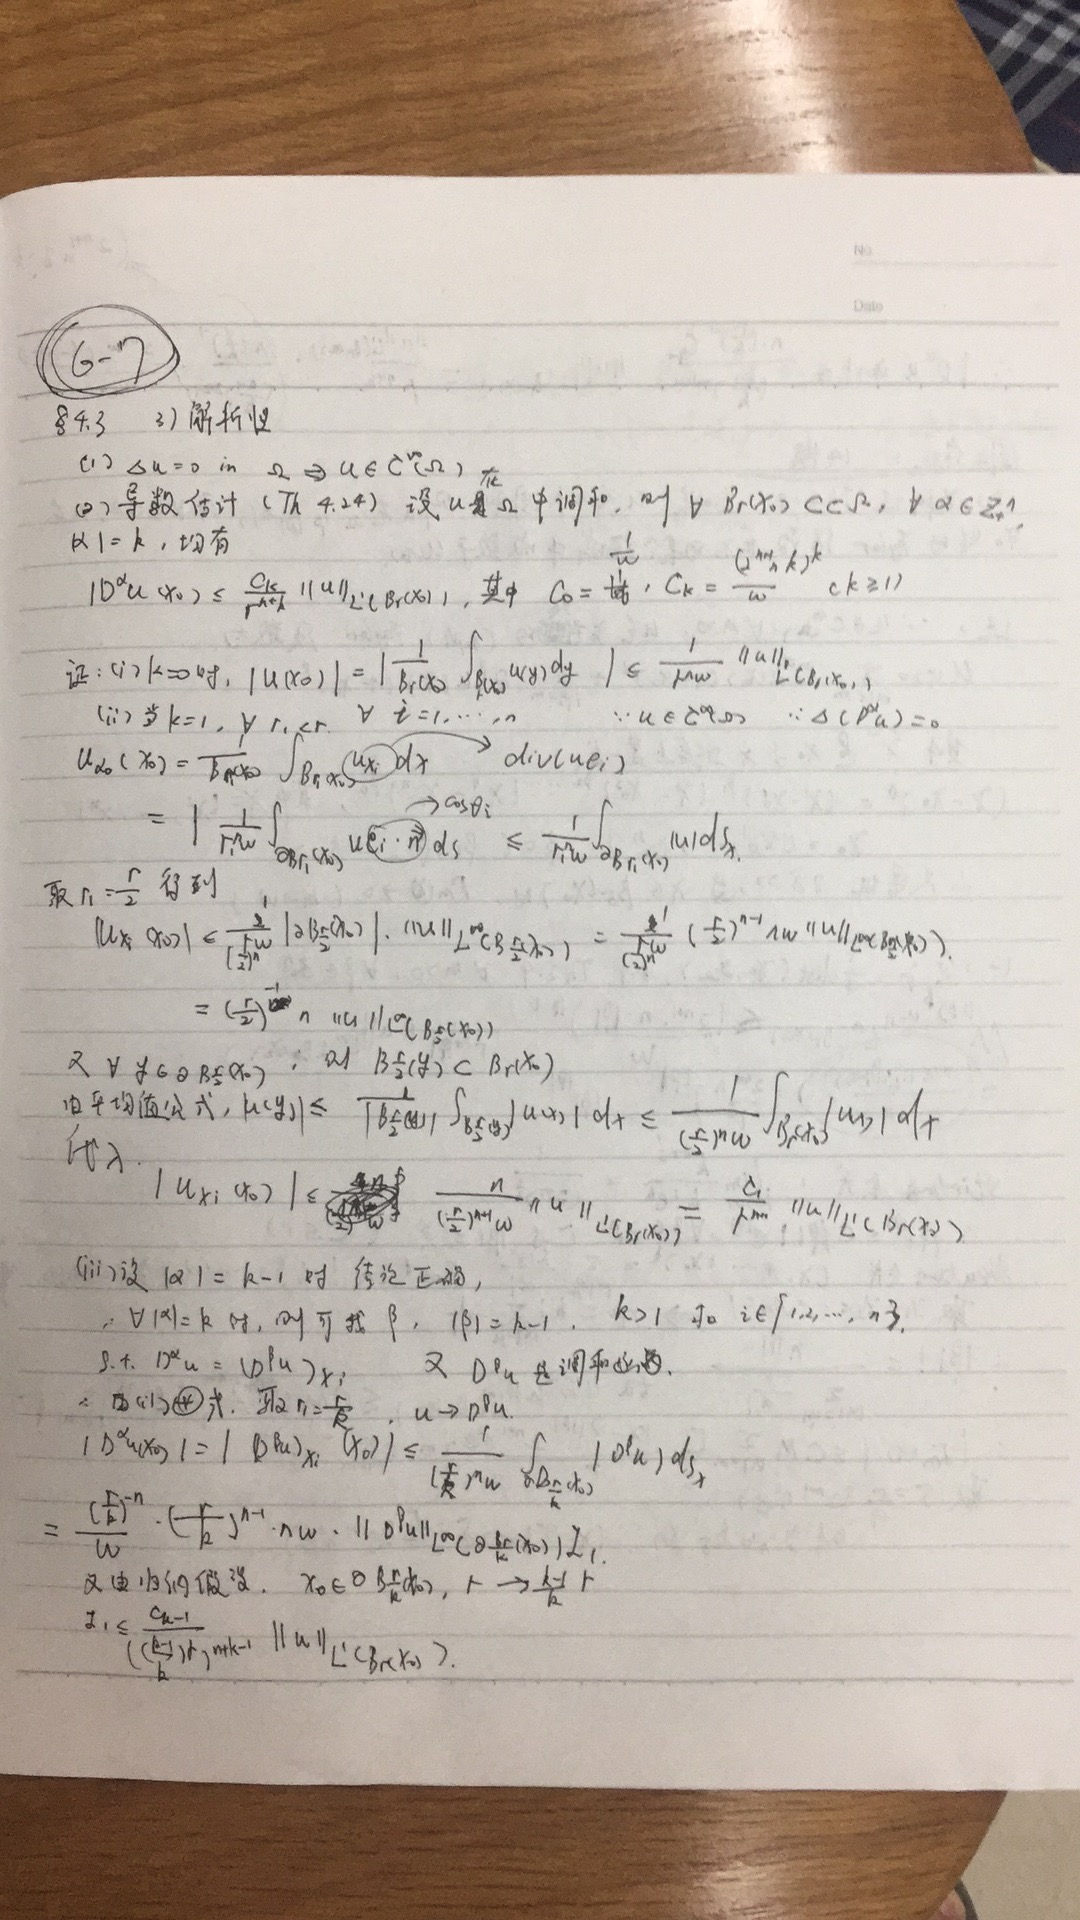 No
Date
6-7
§4.3 3) 解析性
(1) Δu=0 in Ω ⇒ u∈C^∞(Ω)
(2) 导数估计 (Th 4.24) 设u在Ω中调和, 则 ∀ Br(x₀)⊂⊂Ω, ∀ α∈Z₊ⁿ,
|α|=k, 均有
|D^αu(x₀)| ≤ C_k/r^{n+k} ||u||_{L¹(Br(x₀))}, 其中 C₀=1/ω, C_k = (2^{n+1}nk)^k/ω (k≥1)
证: (i) k=0时, |u(x₀)| = |1/Br(x₀) ∫_{Br(x₀)} u(y)dy| ≤ 1/rⁿω ||u||_{L¹(Br(x₀))}
(ii) 当k=1, ∀ r₁<r ∀ i=1,…,n ∵u∈C^∞(Ω) ∴Δ(D^αu)=0
(x₀) = 1/Br₁(x₀) ∫_{Br₁(x₀)} u_{xi} dx → div(ueᵢ)
= |1/r₁ⁿω ∫_{∂Br₁(x₀)} u eᵢ·n⃗ ds → cosθᵢ ≤ 1/r₁ⁿω ∫_{∂Br₁(x₀)} |u|ds_x.
取r₁=r/2 得到
|u_{xi}(x₀)| ≤ 1/(r/2)ⁿω |∂B_{r/2}(x₀)|·||u||_{L^∞(B_{r/2}(x₀))} = 1/(r/2)ⁿω (r/2)^{n-1} nω ||u||_{L^∞(B_{r/2}(x₀))}.
= (r/2)^{-1} n ||u||_{L^∞(B_{r/2}(x₀))}
又 ∀ y∈∂B_{r/2}(x₀), 则 B_{r/2}(y)⊂Br(x₀)
由平均值公式, |u(y)| ≤ 1/|B_{r/2}(y)| ∫_{B_{r/2}(y)} |u(x)| dx ≤ 1/(r/2)ⁿω ∫_{Br(x₀)} |u(x)| dx
代入.
|u_{xi}(x₀)| ≤ n/(r/2)^{n+1}ω ||u||_{L¹(Br(x₀))} = C₁/r^{n+1} ||u||_{L¹(Br(x₀))}
(iii) 设 |α|=k-1 时 结论正确,
∴ ∀|α|=k 时, 则可找 β, |β|=k-1, k>1 和 i∈{1,2,…,n}.
s.t. D^αu = (D^βu)_{xi} 又 D^βu 是调和函数.
∴ 由(ii)式. 取r₁=r/k, u→D^βu.
|D^αu(x₀)| = |(D^βu)_{xi}(x₀)| ≤ 1/(r/k)ⁿω ∫_{∂B_{r/k}(x₀)} |D^βu| ds_x
= (r/k)^{-n}/ω · (r/k)^{n-1}·nω·||D^βu||_{L^∞(∂B_{r/k}(x₀))} I₁.
又由归纳假设. x₀∈∂B_{r/k}(x₀), r→(k-1)/k r
I₁ ≤ C_{k-1}/(((k-1)/k)r)^{n+k-1} ||u||_{L¹(Br(x₀))}.